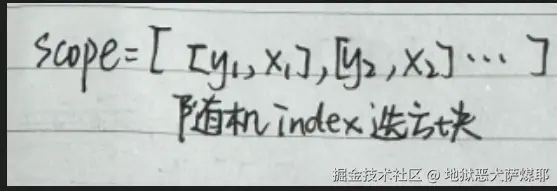 scope=[ [y₁,x₁],[y₂,x₂]… ]
随机index选方块
掘金技术社区 @ 地狱恶犬萨煤耶